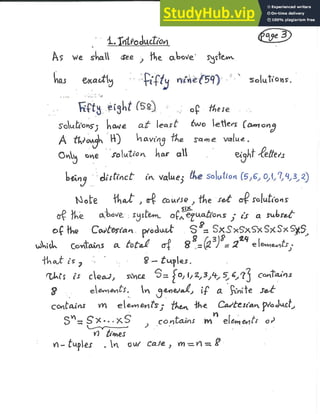 StudyHub.vip
Experienced writers
On-time delivery
100% plagiarism free
page 3
1. Introduction
As we shall see, the above system
has exactly fifty nine (59) solutions.
Fifty eight (58) of these
solutions; have at least two letters (among
A through H) having the same value.
Only one solution has all eight letters
being distinct in value; the solution (5,6,0,1,7,4,3,2)
Note that, of course, the set of solutions
of the above system of six equations; is a subset
of the Cartesian product S⁸= S×S×S×S×S×S×S×S,
which contains a total of 8⁸=(2³)⁸=2²⁴ elements;
that is, 8-tuples.
This is clear, since S={0,1,2,3,4,5,6,7} contains
8 elements. In general, if a finite set
contains m elements; then the Cartesian product,
Sⁿ= S×...×S, contains mⁿ elements or
n times
n-tuples. In our case, m=n=8